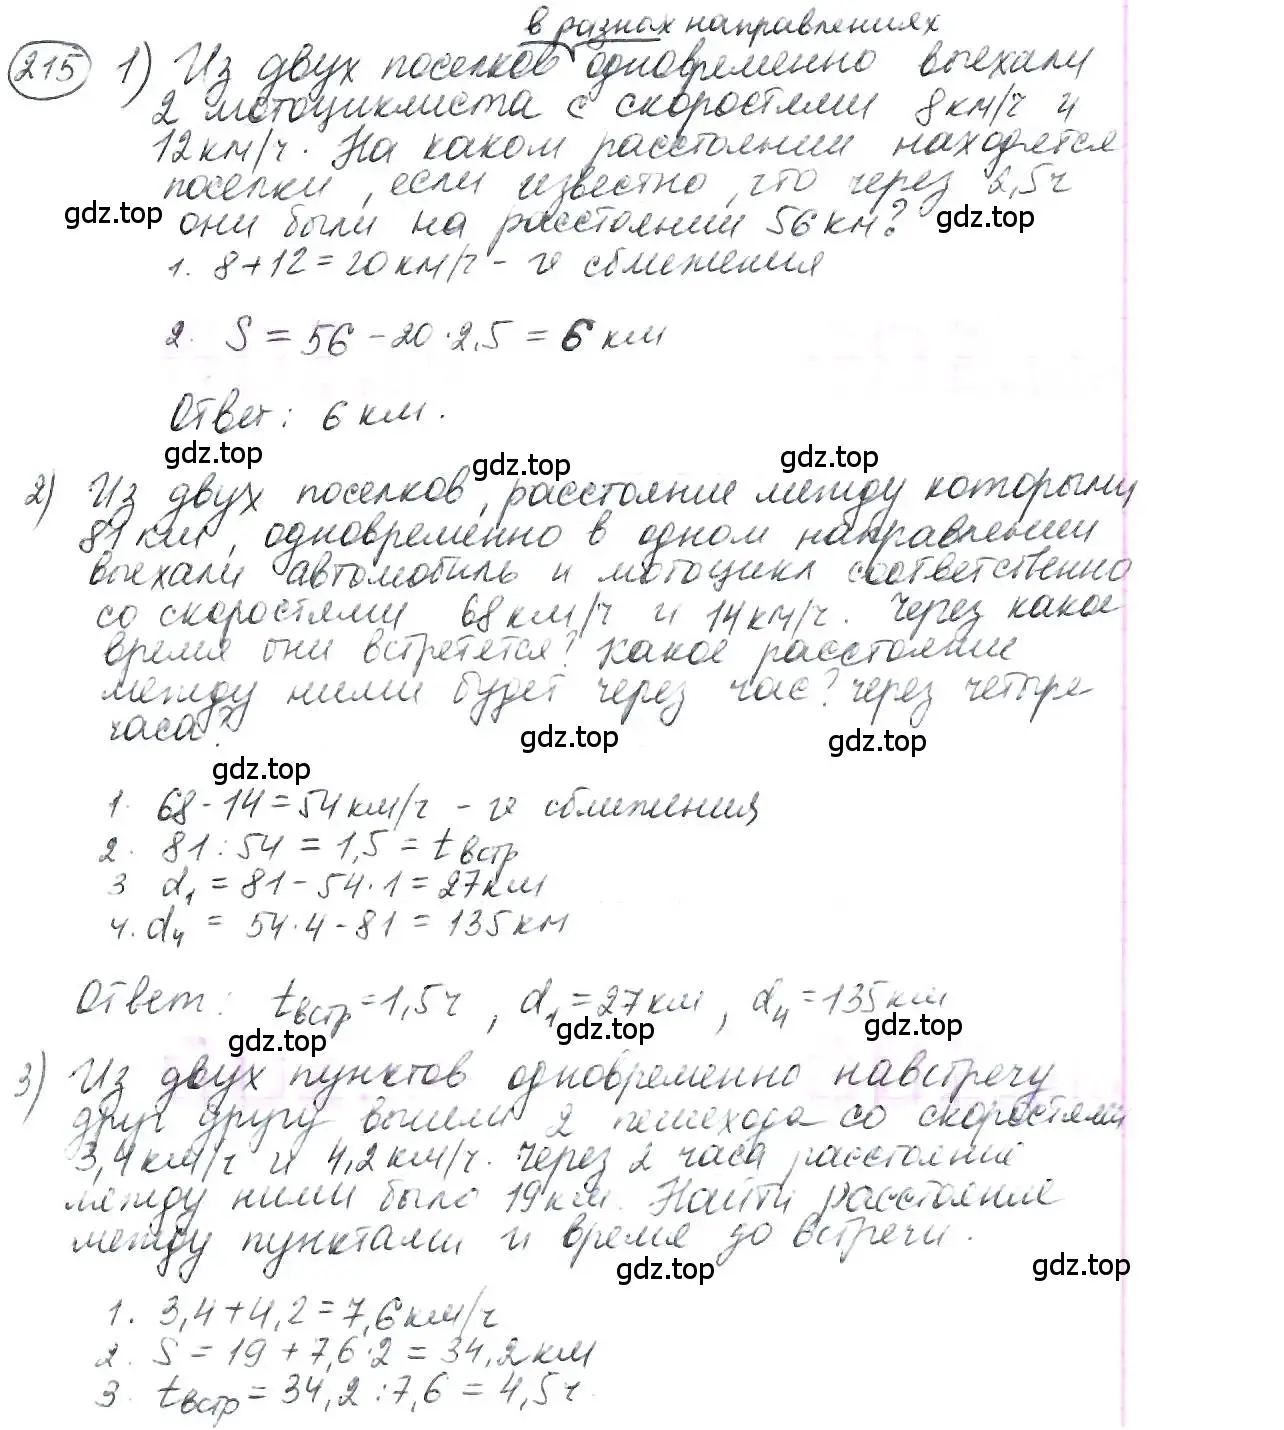 в разных направлениях
215 1) Из двух поселков одновременно выехали
2 мотоциклиста с скоростями 8км/ч и
12км/ч. На каком расстоянии находятся
поселки, если известно, что через 2,5ч
gdz.top они были на расстоянии 56км? gdz.top
1. 8+12=20км/ч - v сближения
2. S = 56 - 20·2,5 = 6 км
Ответ: 6 км.
gdz.top gdz.top gdz.top
2) Из двух поселков, расстояние между которыми
81 км, одновременно в одном направлении
выехали автомобиль и мотоцикл соответственно
со скоростями 68км/ч и 14км/ч. Через какое
время они встретятся? Какое расстояние
между ними будет через час? через четыре
часа?
gdz.top gdz.top gdz.top
1. 68-14=54км/ч - v сближения
2. 81:54 = 1,5 = tвстр
3 d1 = 81-54·1=27км
4. d4 = 54·4-81=135км
Ответ: tвстр=1,5ч, d1=27км, d4=135км
gdz.top gdz.top gdz.top
3) Из двух пунктов одновременно навстречу
друг другу вышли 2 пешехода со скоростями
3,4км/ч и 4,2км/ч. Через 2 часа расстояние
между ними было 19км. Найти расстояние
между пунктами и время до встречи.
gdz.top gdz.top
1. 3,4+4,2=7,6км/ч
2. S = 19+7,6·2=34,2км
3. tвстр=34,2:7,6=4,5ч.